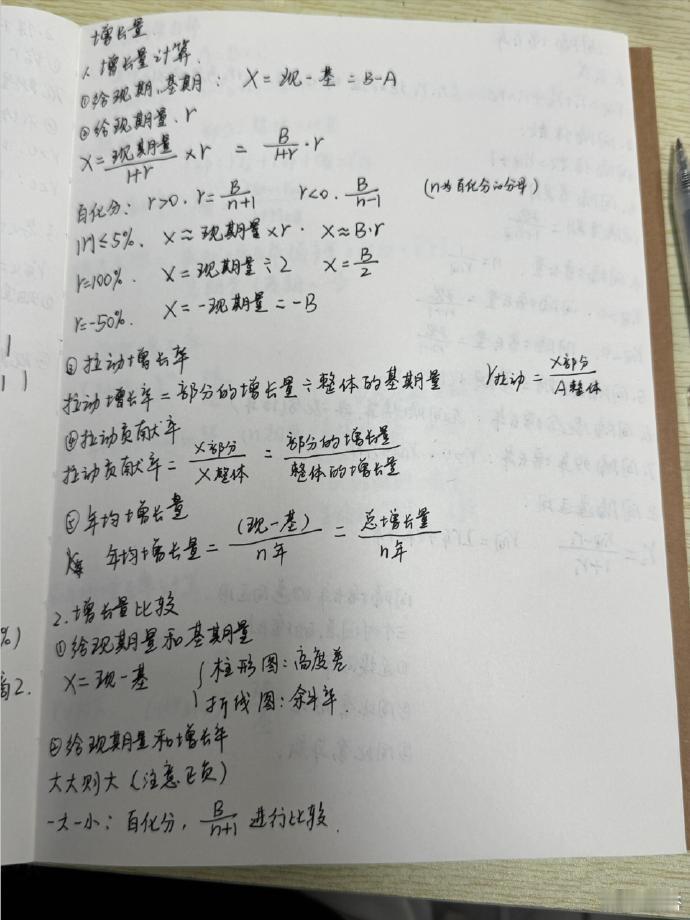 增长量
1. 增长量计算.
①给现期,基期: X=现-基=B-A
②给现期量、r
X=现期量/1+r ×r = B/1+r ·r
百化分: r>0. r=B/n+1 r<0. B/n-1 (n为百化分的分母)
|r|≤5%. X≈现期量×r. X≈B·r
r=100%. X=现期量÷2 X=B/2
r=-50%. X=-现期量=-B
③拉动增长率
拉动增长率=部分的增长量÷整体的基期量 r拉动=X部分/A整体
④拉动贡献率
拉动贡献率=X部分/X整体=部分的增长量/整体的增长量
⑤年均增长量
年均增长量=(现-基)/n年=总增长量/n年
2.增长量比较
①给现期量和基期量
X=现-基 { 柱形图:高度差
折线图:斜率.
②给现期量和增长率
大大则大(注意正负)
一大一小:百化分, B/n+1 进行比较.
%)
2.